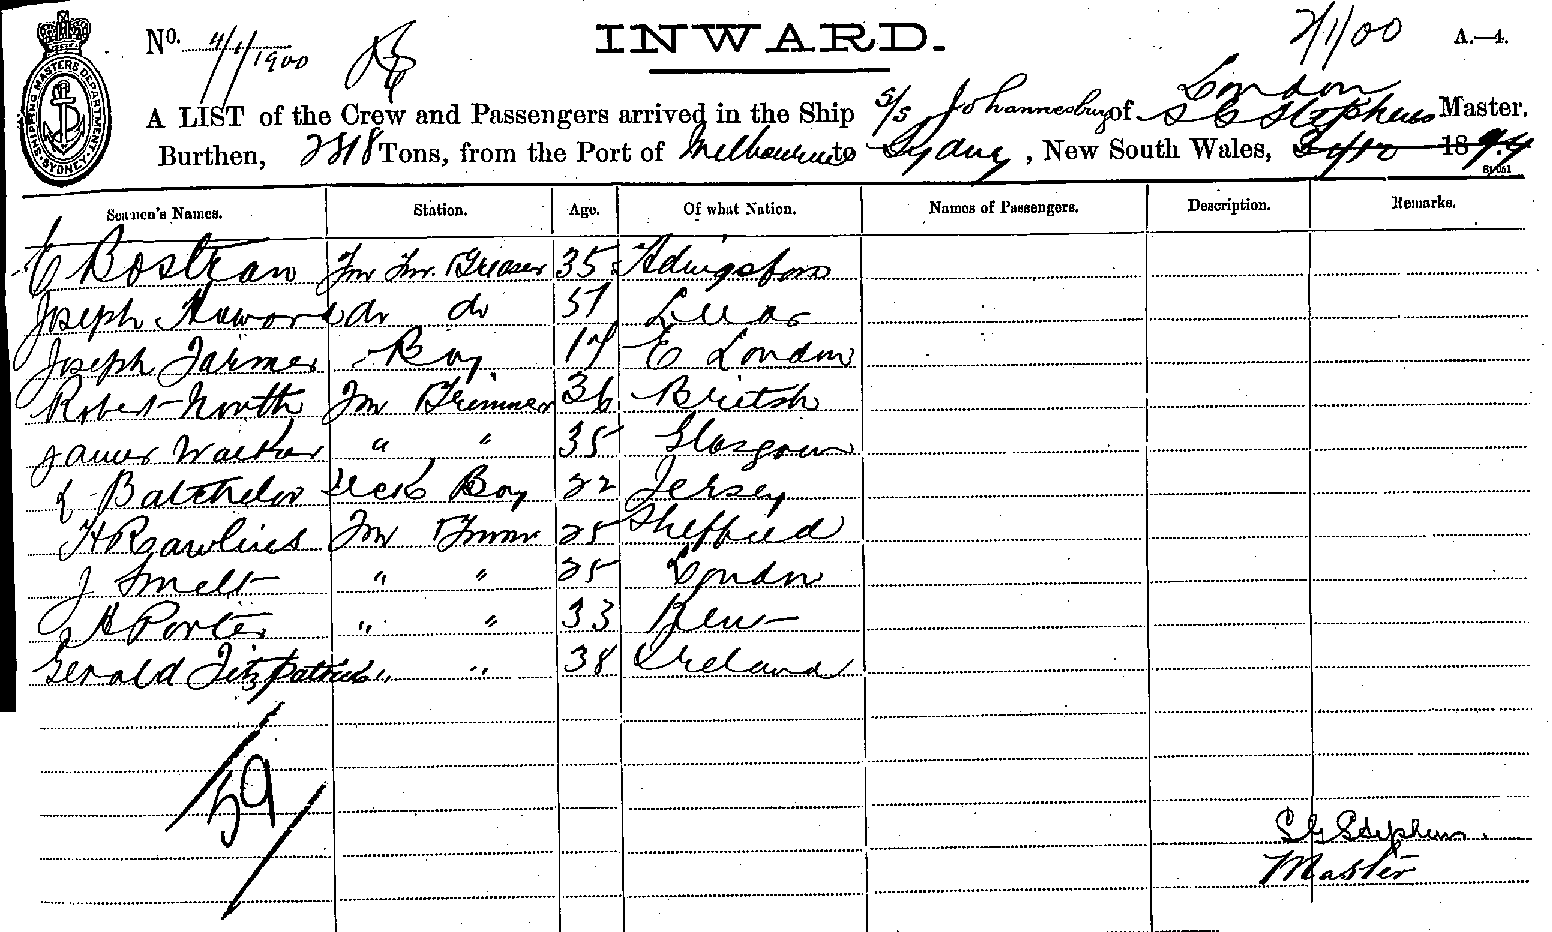 No. 4/1/1900 INWARD. 2/1/00 A.—4.
London
A LIST of the Crew and Passengers arrived in the Ship S/S Johannesburg of S G Stephens Master.
Burthen, Tons, from the Port of Melbourne to Sydney, New South Wales, 18
SHIPPING MASTERS DEPARTMENT SYDNEY
Seamen's Names. Station. Age. Of what Nation. Names of Passengers. Description. Remarks.
Bostran Fm Fm Greaser 35
Joseph Howard do do
Joseph Farmer Boy E London
Robert North Fm Trimmer 36 British
James Walker " " 35 Glasgow
Batchelor Boy 22 Jersey
H Rawlins Fm Trimmer 25 Sheffield
J Smelt " " 25 London
A Porter " " 33
Gerald Fitzpatrick " " 38 Ireland
59
S G Stephens.
Master